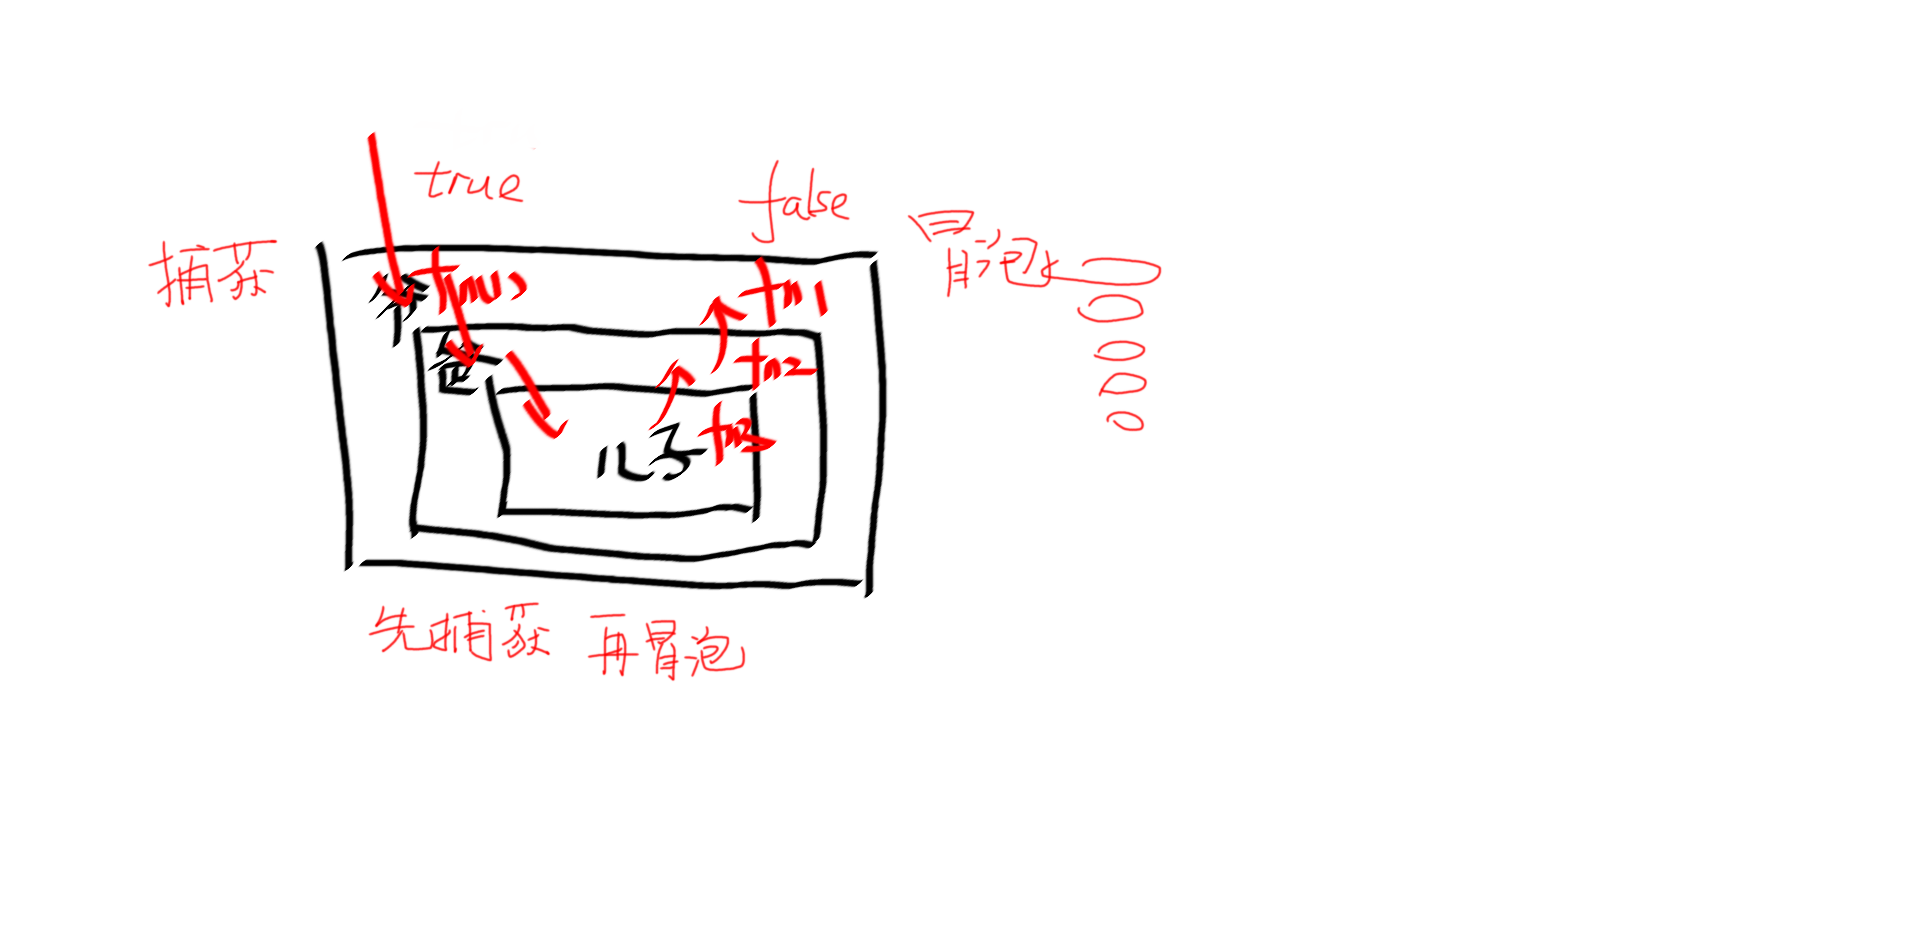 true
false
捕获
冒泡
爷
fn1
爸
fn2
儿子
fn3
先捕获 再冒泡